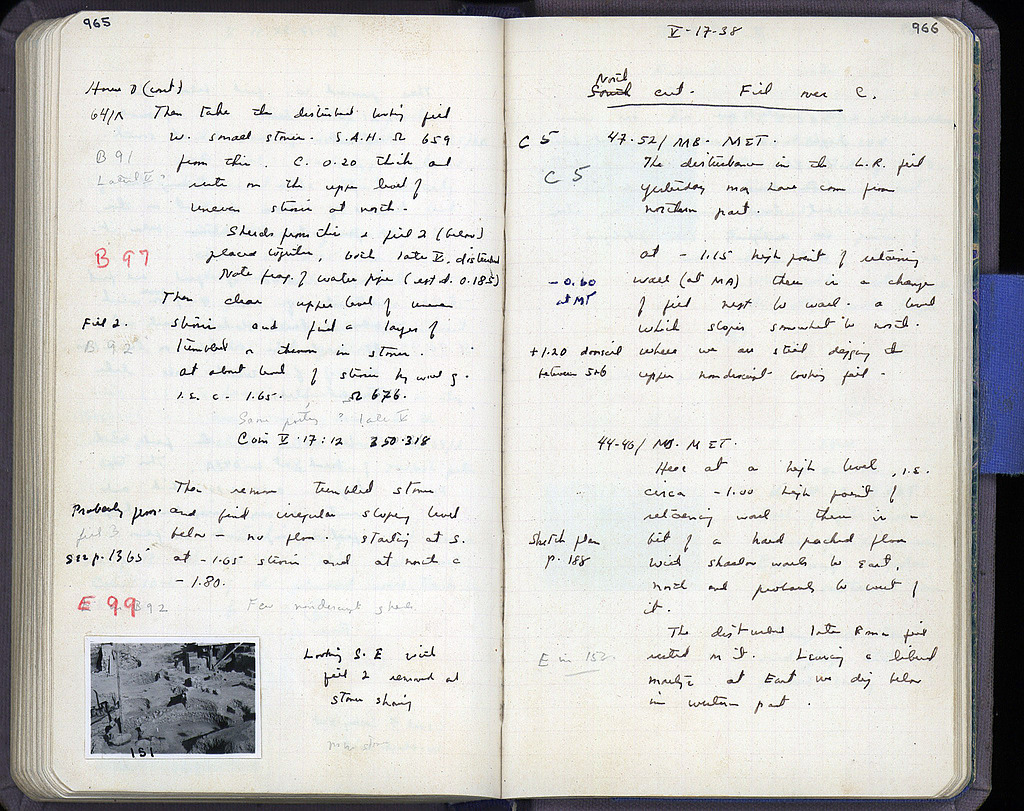 965
House D (cont)
64/Λ Then take the disturbed looking fill
w. small stones. S.A.H. Ω 659
B 91 from this. C. 0.20 thick and
Late V? rests on the upper level of
uneven stones at north.
Sherds from this & fill 2 (below)
B 97 placed together, both late V, disturbed
Note frag. of water pipe (est d. 0.185)
Then clear upper level of uneven
Fill 2. stones and find a layer of
B 92 tumbled or thrown in stones.
at about level of stones by wall g.
i.e. c - 1.65. Ω 676.
Some pottery ? late V
Coin V-17:12 350-318
Then remove tumbled stones
Probably floor and find irregular sloping level
fill 3 below - no floor. Starting at S.
See p. 1365 at - 1.65 stones and at north c
- 1.80.
E 99 B 92 Few nondescript sherds
Looking S. E with
fill 2 removed and
stones showing
151
966
V-17-38
North
South cut. Fill over C.
C 5 47-52/ MB-MET.
C 5 The disturbance in the L.R. fill
yesterday may have come from
northern part.
at - 1.15 high point of retaining
- 0.60 wall (at MA) there is a change
at MΓ of fill next to wall. a level
which slopes somewhat to north.
+1.20 domicil where we are still digging the
between 5+6 upper nondescript looking fill -
44-46/ MB-MET.
Here at a high level, i.e.
circa -1.00 high point of
retaining wall there is -
Sketch plan bit of a hard packed floor
p. 188 with shallow walls to East,
north and probably to west of
it.
The disturbed late Roman fill
E in 152 rested on it. Leaving a
at East we dig below
in western part.